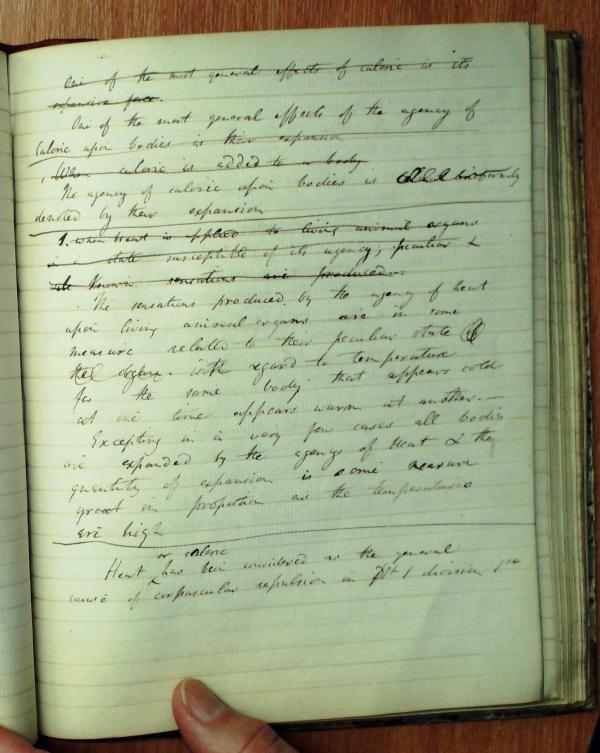 One of the most general effects of caloric is its
expansive force.
One of the most general effects of the agency of
Caloric upon bodies is their expansion
When caloric is added to a body
The agency of caloric upon bodies is uniformly
denoted by their expansion
1. When heat is applied to living animal organs
in a state susceptible of its agency, peculiar &
well known sensations are produced.—
The sensations produced by the agency of heat
upon living animal organs are in some
measure related to their peculiar state of
the organ with regard to temperature
for the same body that appears cold
at one time appears warm at another.—
Excepting in a very few cases all bodies
are expanded by the agency of Heat & the
quantity of expansion is some measure
great in proportion as the temperatures
are high
or caloric
Heart has been considered as the general
cause of corpuscular repulsion in Pt 1 division 1st